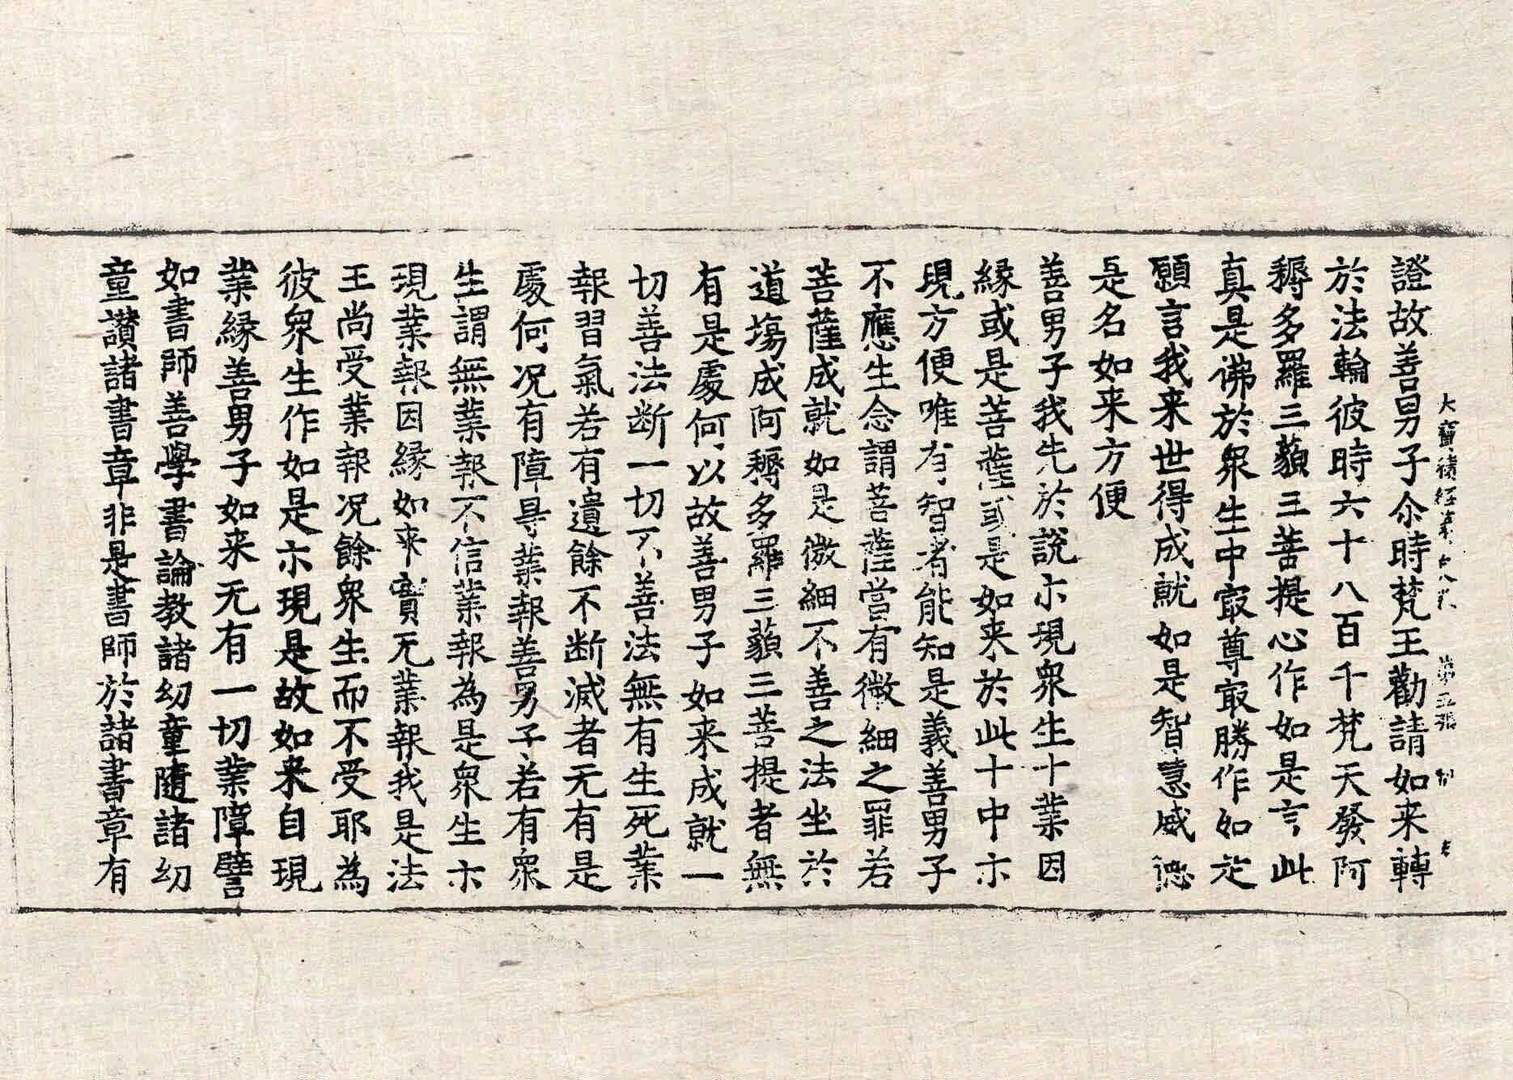 大寶積經卷 第五張
證故善男子尒時梵王勸請如来轉
於法輪彼時六十八百千梵天發阿
耨多羅三藐三菩提心作如是言此
真是佛於衆生中㝡尊㝡勝作如是
願言我来世得成就如是智慧威德
是名如来方便
善男子我先於說尒現衆生十業因
緣或是菩薩或是如来於此十中尒
現方便唯有智者能知是義善男子
不應生念謂菩薩當有微細之罪若
菩薩成就如是微細不善之法坐於
道場成阿耨多羅三藐三菩提者無
有是處何以故善男子如来成就一
切善法断一切不善法無有生死業
報習氣若有遺餘不断滅者无有是
處何况有障㝵業報善男子若有衆
生謂無業報不信業報為是衆生尒
現業報因緣如来實无業報我是法
王尚受業報况餘衆生而不受耶為
彼衆生作如是尒現是故如来自現
業緣善男子如来无有一切業障譬
如書師善學書論教諸幼童隨諸幼
童讚諸書章非是書師於諸書章有